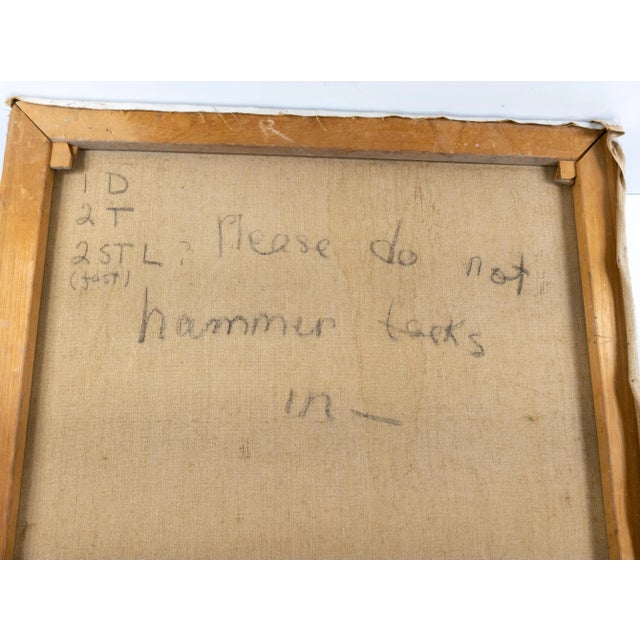 1 D
2 T
2 ST L?
(fast)
Please do not
hammer tacks
in —